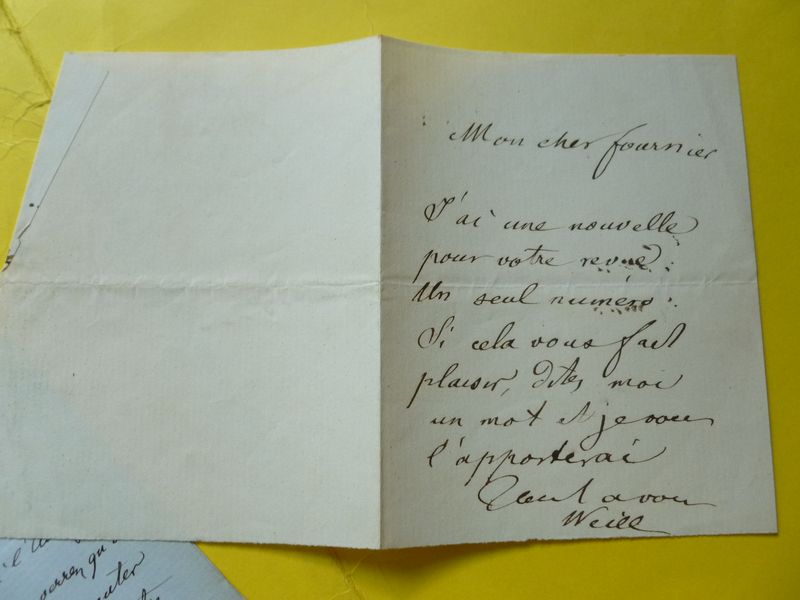 Mon cher fournier
J'ai une nouvelle
pour votre revue.
Un seul numéro.
Si cela vous fait
plaisir, dites moi
un mot et je vous
l'apporterai
Tout a vous
Weill